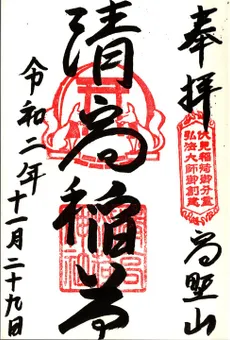 奉拝
伏見稲荷御分霊
弘法大師御創建
高野山
清高稲荷
令和二年十一月二十九日